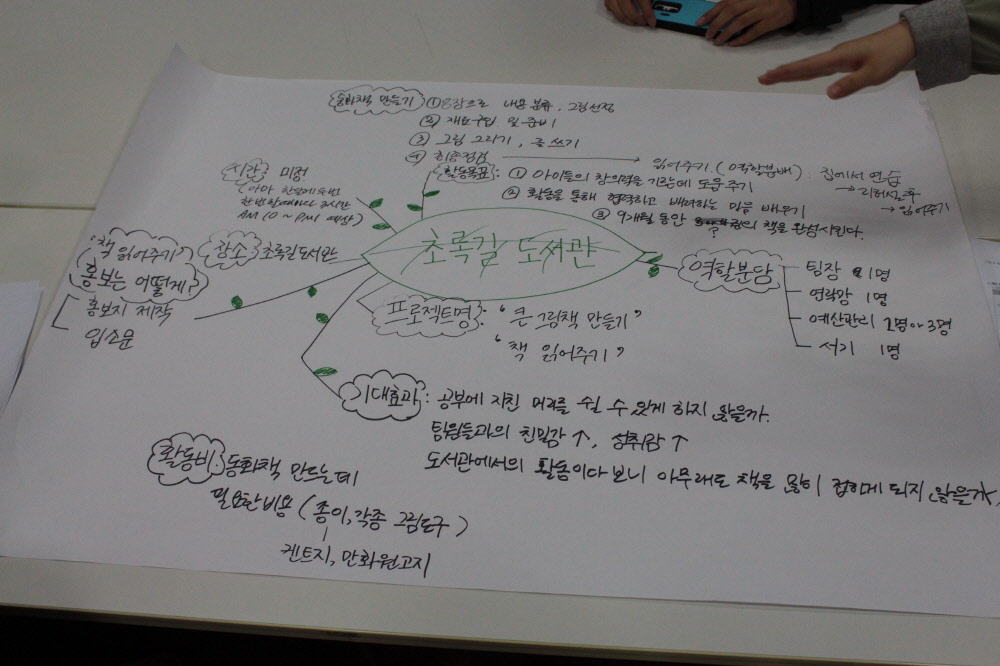 동화책 만들기 ① 8장으로 내용 분류, 그림선정
② 재료구입 및 준비
③ 그림 그리기, 글 쓰기
④ 최종점검 → 읽어주기 (역할분배) : 집에서 연습
→ 리허설 후
→ 읽어주기
활동목표: ① 아이들의 창의력을 기르는데 도움 주기
② 활동을 통해 협력하고 배려하는 마음 배우기
③ 9개월 동안 ?권의 책을 완성시킨다.
시간 미정
(아마 한달에 두번
한번 할때마다 3시간
AM 10 ~ PM1 예상)
장소 초록길도서관
초록길 도서관
'책 읽어주기'
홍보는 어떻게?
홍보지 제작
입소문
프로젝트명: "큰 그림책 만들기"
"책 읽어주기"
역할분담
팀장 1명
연락망 1명
예산관리 2명or3명
서기 1명
기대효과: 공부에 지친 머리를 쉴 수 있게 하지 않을까.
팀원들과의 친밀감 ↑, 성취감 ↑
도서관에서의 활동이다 보니 아무래도 책을 많이 접하게 되지 않을까.
활동비: 동화책 만드는데
필요한 비용 (종이, 각종 그림도구)
켄트지, 만화원고지